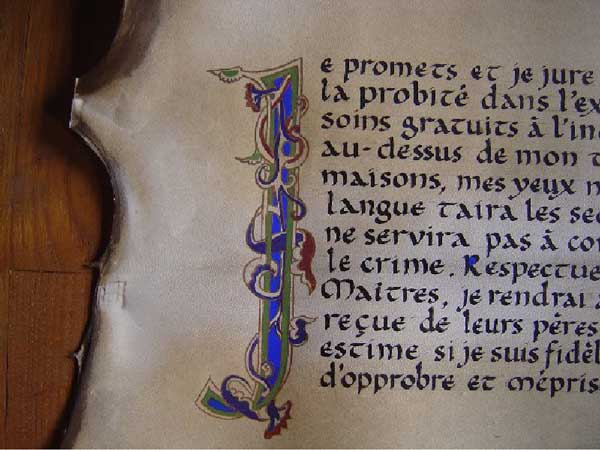 Je promets et je jure
la probité dans l'ex
soins gratuits à l'in
au-dessus de mon t
maisons, mes yeux n
langue taira les sec
ne servira pas à co
le crime. Respectue
Maîtres, je rendrai à
reçue de leurs pères
estime si je suis fidèl
d'opprobre et mépris